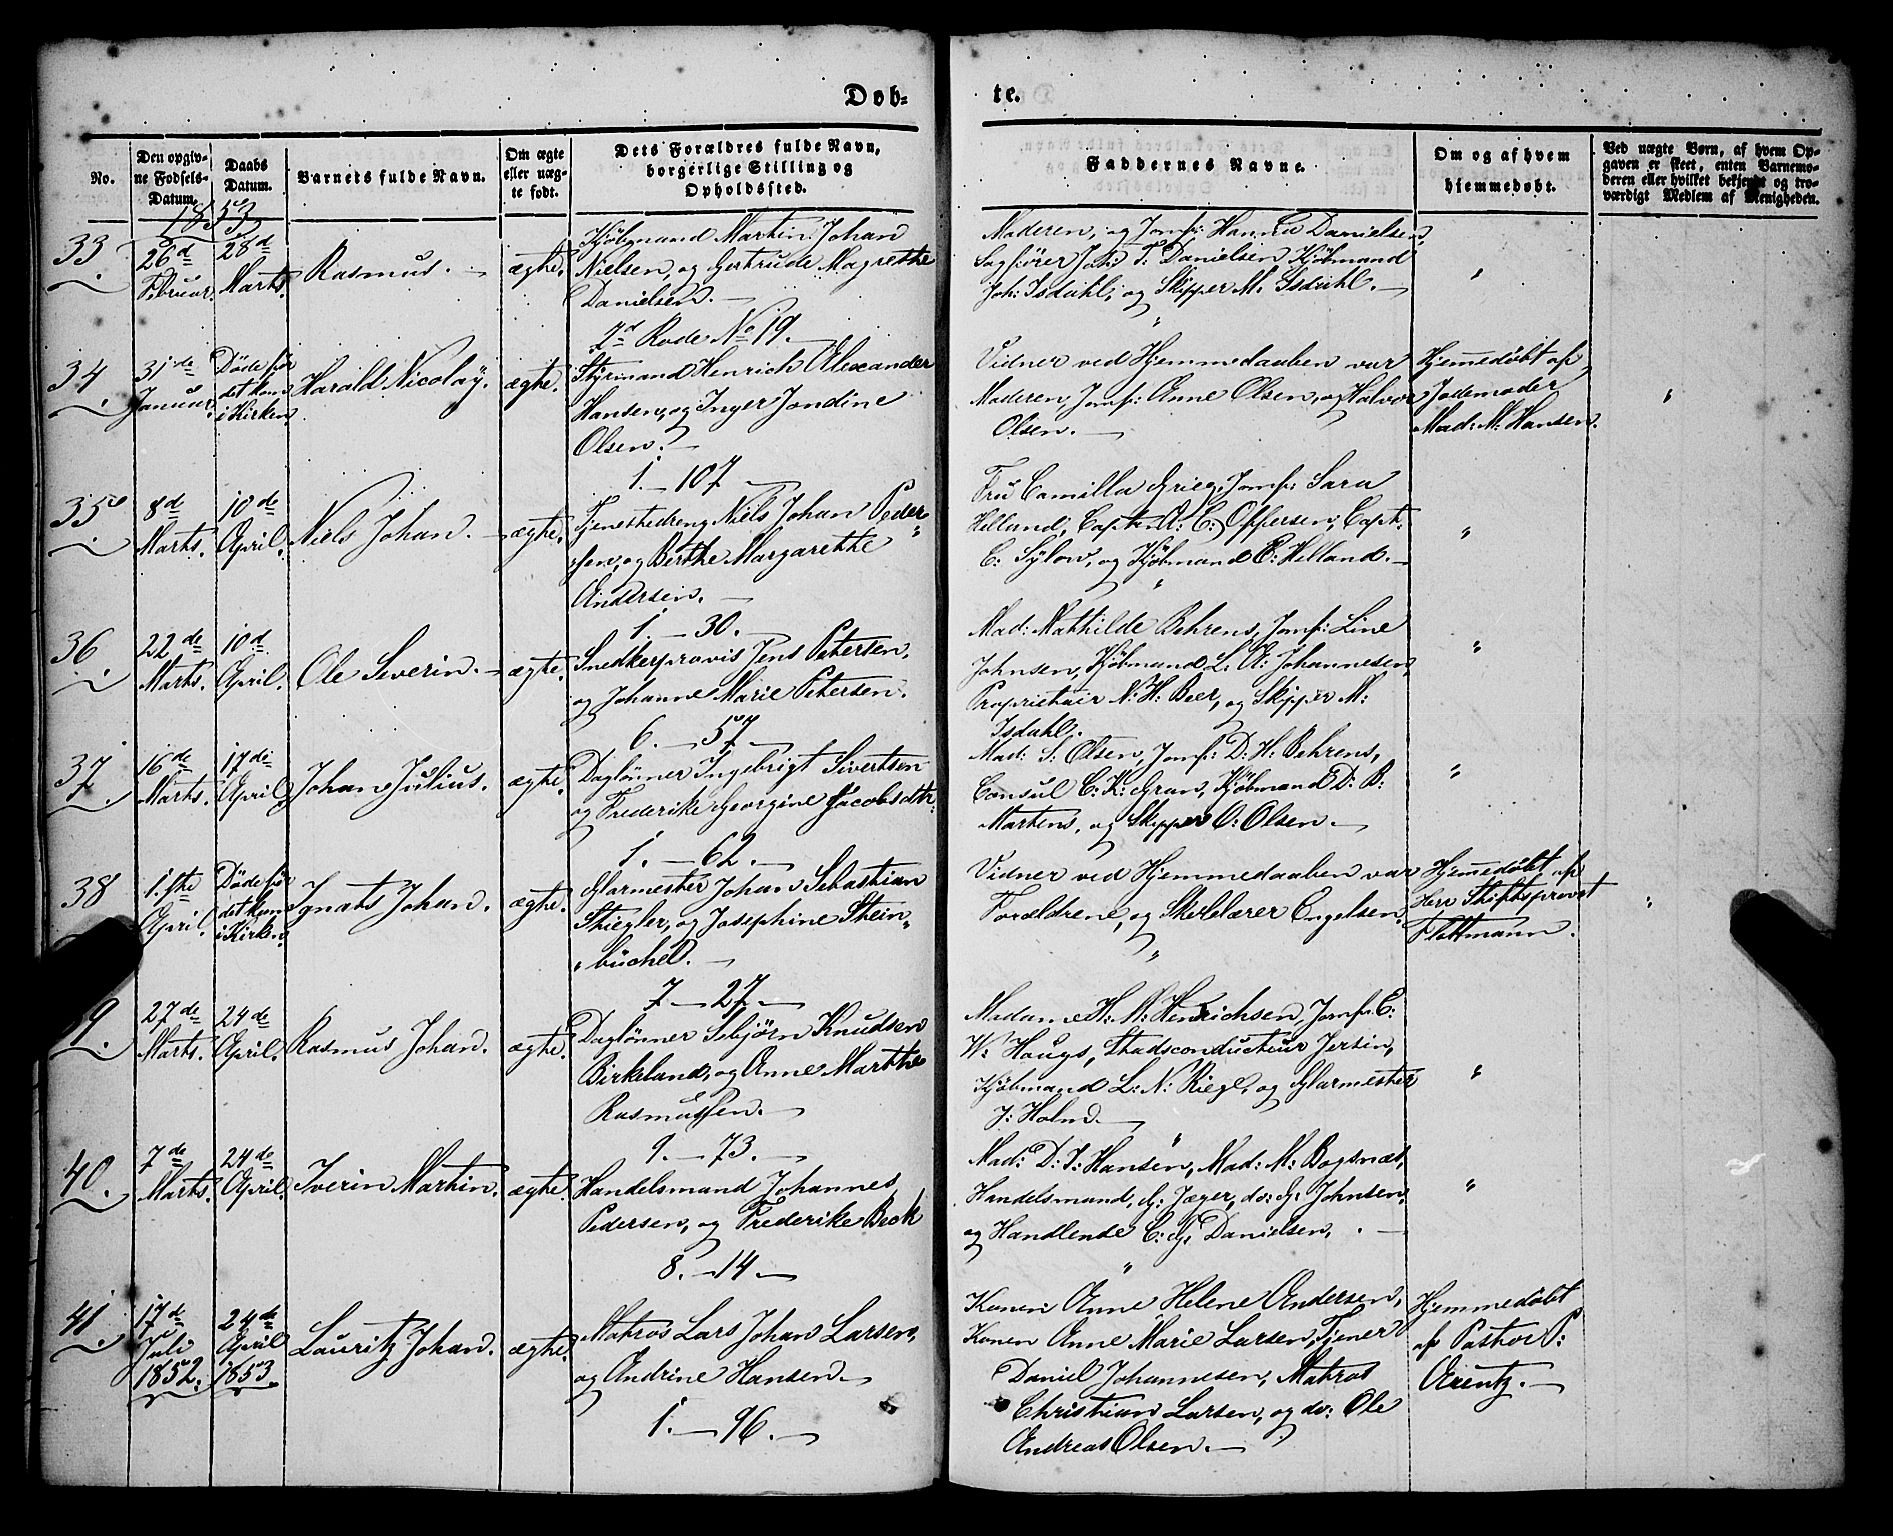 Døb-
te.
No.
Den opgiv-
ne Fødsels-
Datum.
Daabs
Datum.
Barnets fulde Navn.
Om ægte
eller uæg-
te født.
Dets Forældres fulde Navn,
borgerlige Stilling og
Opholdssted.
Faddernes Navne.
Om og af hvem
hjemmedøbt.
Ved uægte Børn, af hvem Op-
gaven er skeet, enten Barnemo-
deren eller hvilket bekjendt og tro-
værdigt Medlem af Menigheden.
1853
33
26d
Februar.
28d
Marts.
Rasmus.
ægte.
Kjøbmand Martin Johan
Nielsen, og Gertrude Magrethe
Danielsen.
7d Rode No 19.
Moderen, og Jomf: Hanna Danielsen,
Sagfører Joh: T. Danielsen, Kjøbmand
Joh: Isdahl, og Skipper M. Isdahl.
34
31de
Januar.
Døde før
det kom
i Kirken.
Harald Nicolaÿ.
ægte.
Styrmand Henrich Alexander
Hansen, og Inger Jondine
Olsen.
1. — 107
Vidner ved Hjemmedaaben var
Moderen, Jomf: Anne Olsen, og Halvor
Olsen.
Hjemmedøbt af
Jodemoder
Mad: M: Hansen.
35
8d
Marts.
10de
April.
Niels Johan.
ægte.
Tjenestedreng Niels Johan Peder
sen, og Berthe Margarethe
Andersen.
1. — 30.
Fru Camilla Grieg, Jomf: Sara
Helland, Capt: A: C: Offersen, Capt:
C: Sylow, og Kjøbmand C: Helland.
36
22de
Marts.
10d
April.
Ole Severin.
ægte.
Snedkerprovis Jens Petersen,
og Johanne Marie Petersen.
6. — 57
Mad: Mathilde Behrens, Jomf: Line
Johnsen, Kjøbmand L: A: Johannesen,
Proprietair N: H: Beer, og Skipper M:
Isdahl.
37
16de
Marts.
17de
April
Johan Julius.
ægte.
Daglønner Ingebrigt Sivertsen
og Frederike Georgine Jacobsdtr:
1. — 62.
Mad: S: Olsen, Jomf: D: H: Behrens,
Consul C: K: Gran, Kjøbmand D: B:
Martens, og Skipper O: Olsen.
38
1.ste
April.
Døde før
det kom
i Kirken.
Ignats Johan.
ægte.
Glarmester Johan Sebastian
Stiegler, og Josephine Stein„
„büchel.
7 — 27
Vidner ved Hjemmedaaben var
Forældrene, og Skolelærer Engelsen.
Hjemmedøbt af
Herr Stiftsprovst
Flottmann.
39.
27de
Marts.
24de
April.
Rasmus Johan.
ægte.
Daglønner Sebjørn Knudsen
Birkeland, og Anne Marthe
Rasmussen.
9. — 73.
Madame H: M: Henrichsen, Jomf: C:
W: Haugs, Stadsconducteur Jersin,
Kjøbmand L: N: Riege, og Glarmester
J: Holm.
40.
7de
Marts.
24de
April.
Iverin Martin.
ægte.
Handelsmand Johannes
Pedersen, og Frederike Beck
8. — 14
Mad: D: J: Hansen, Mad: M: Bogsnæs,
Handelsmand, G: Jæger, do: G: Johnsen,
og Handlende C: G: Danielsen.
41.
17de
Juli
1852.
24de
April
1853.
Lauritz Johan.
ægte.
Matros Lars Johan Larsen,
og Andrine Hansen.
1. — 96.
Konen Anne Helene Andersen,
Konen Anne Marie Larsen, Tjener
Daniel Johannesen, Matros
Christian Larsen, og do: Ole
Andreas Olsen.
Hjemmedøbt
af Pastor P:
Arentz.